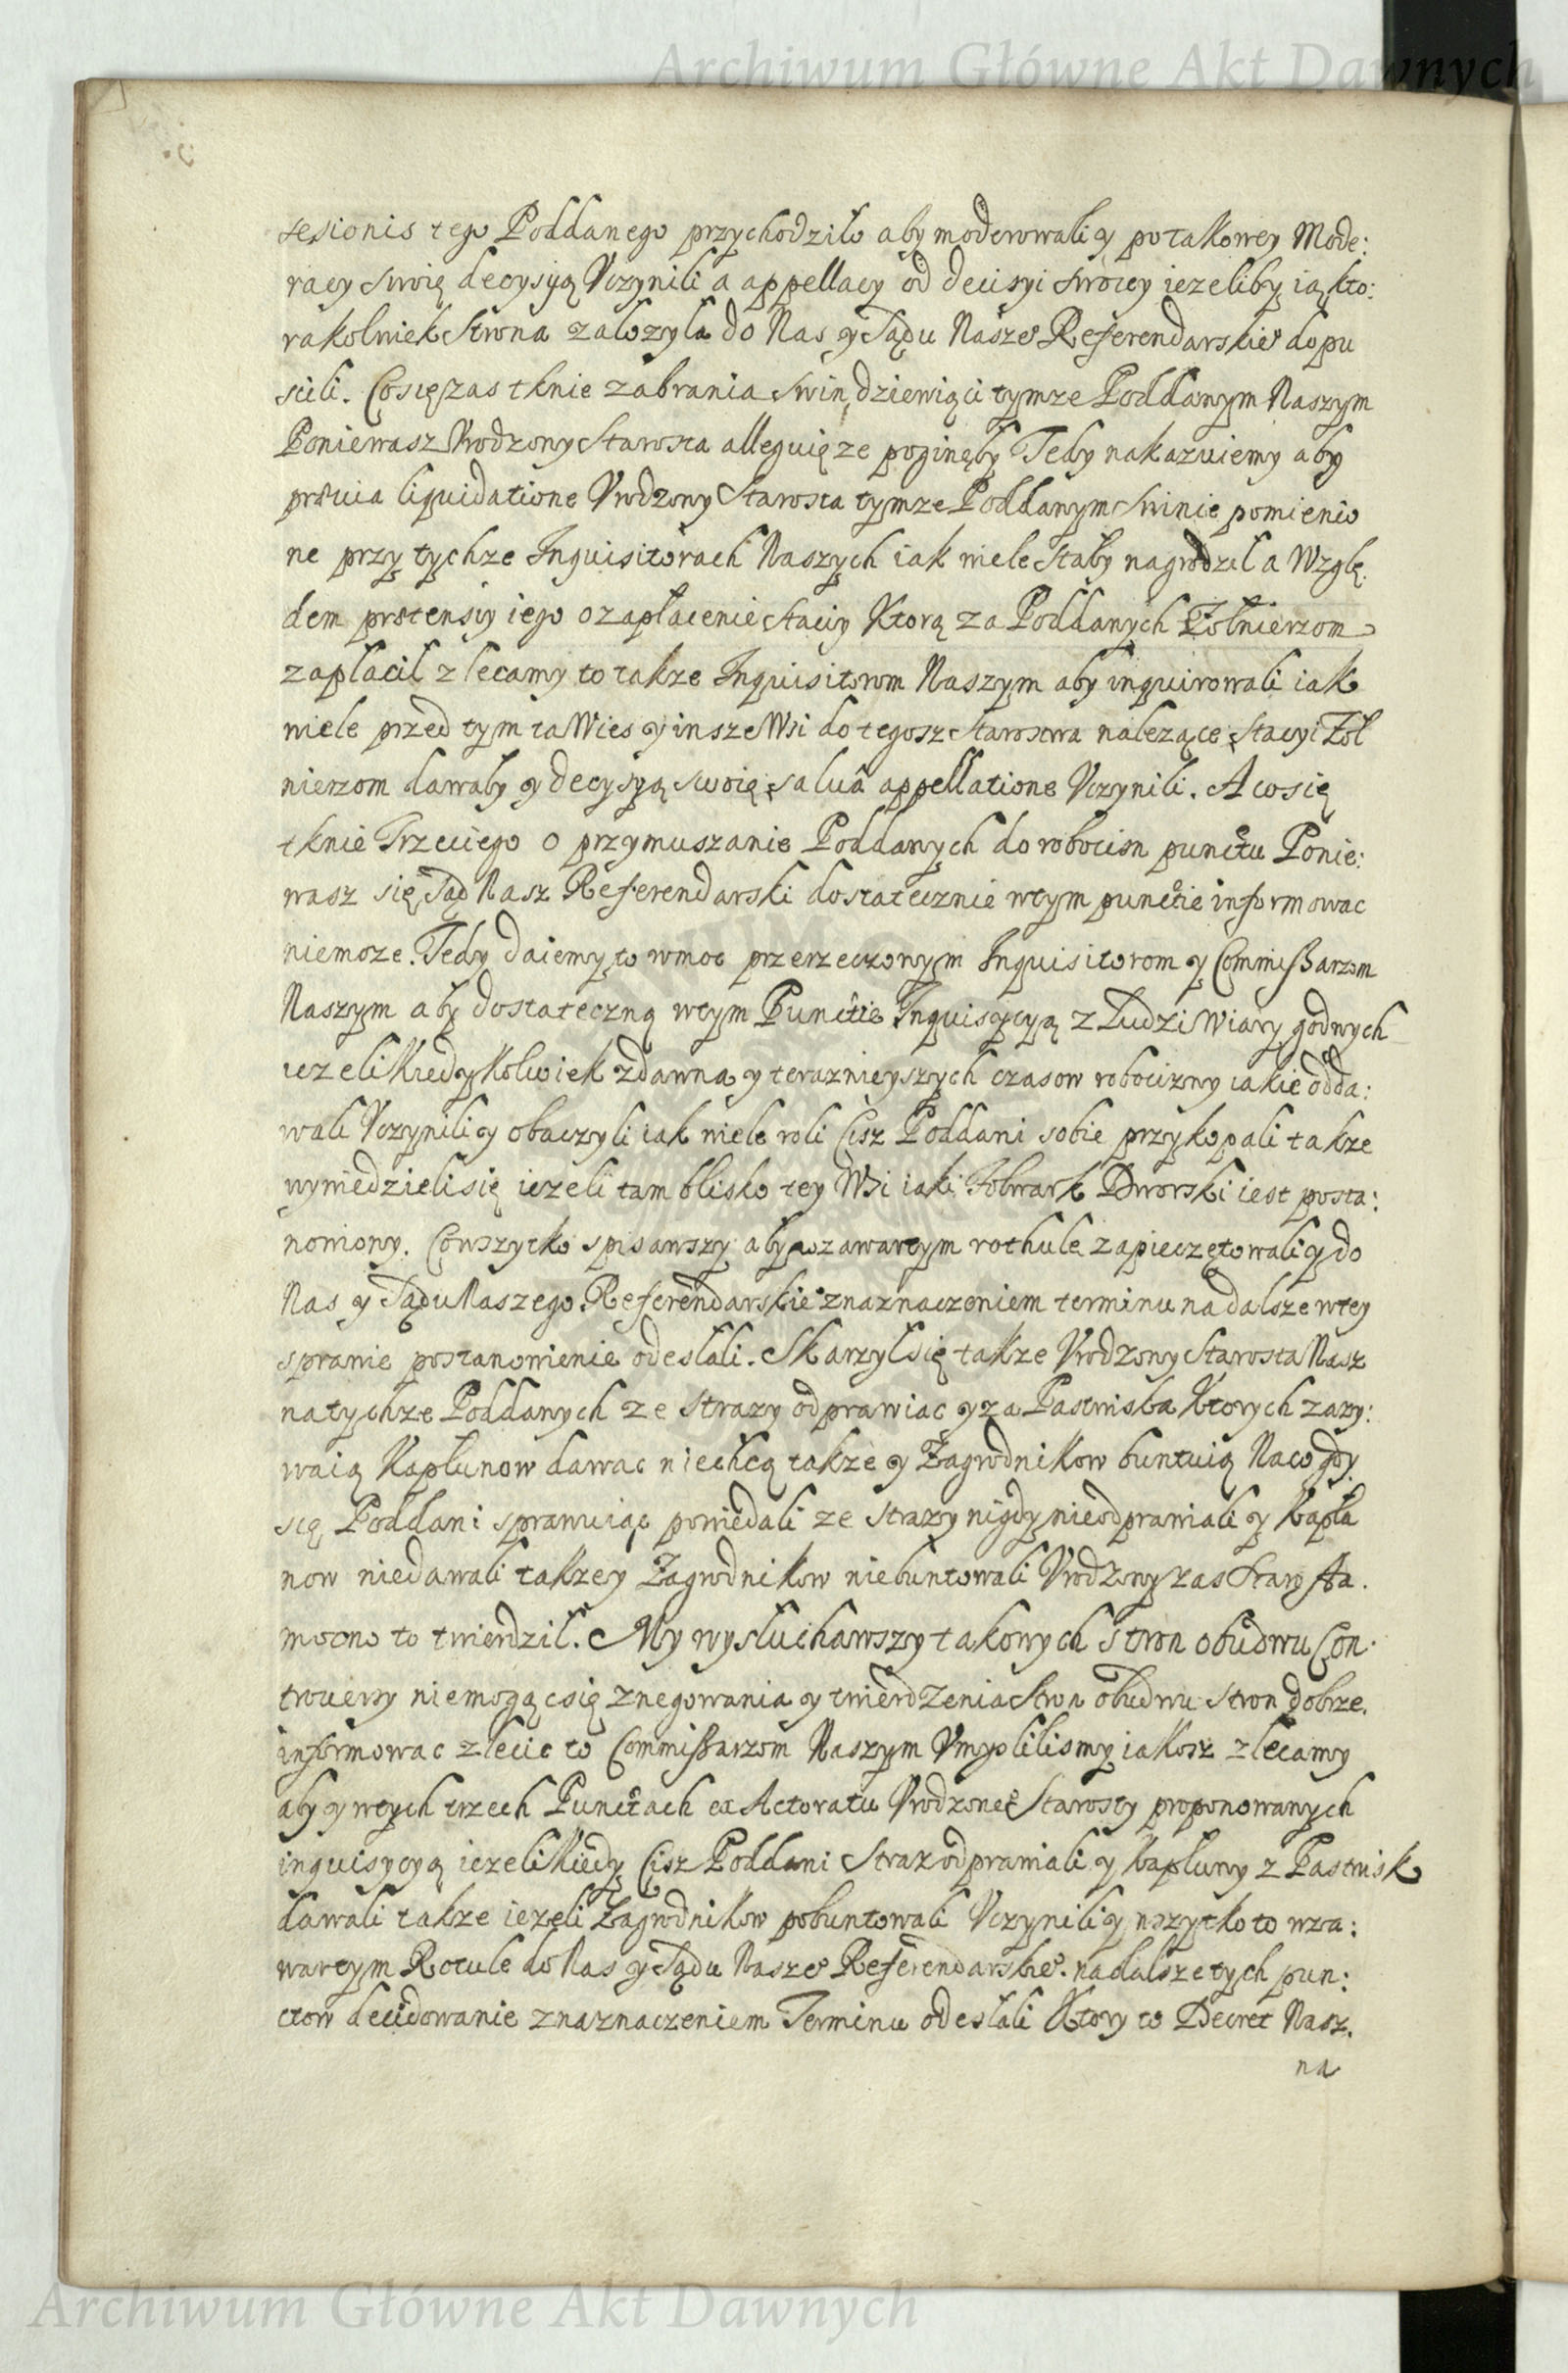 Archiwum Główne Akt Dawnych
sesionis tego Poddanego przychodziło aby moderowali y po takowey Mode:
racy swoię decysyą Vczynili a appellacy od decisyi swoiey iezeliby ią kto:
rakolwiek Strona załozyła do Nas y Sądu Nasze° Referendarskie° dopu
scili. Co się zas tknie zabrania swin dziewiąci tymze Poddanym Naszym
Poniewasz Vrodzony Starosta alleguię ze poginęły Tedy nakazuiemy aby
prævia liquidatione Vrodzony Starosta tymze Poddanym Swinie pomienio
ne przy tychze Inquisitorach Naszych iak wiele stały nagrodzil a Wzglę
dem prætensiy iego o zapłacenie Staciy Ktorą za Poddanych Żołnierzom
zapłacil zlecamy to takze Inquisitorom Naszym aby inquirowali iak
wiele przed tym ta Wies y insze Wsi do tegosz Starostwa nalezące Stacyi Żoł
nierzom dawały y decysyą swoię salua appellatione Vczynili. A co się
tknie Trzeciego o przymuszanie Poddanych do robocizn punctu Ponie:
wasz się Sąd Nasz Referendarski dostatecznie wtym punctie informowac
niemoze. Tedy daiemy to wmoc przerzeczonym Inquisitorom y Commissarzom
Naszym aby dostateczną wtym Punctie Inquisycyą z Ludzi Wiary godnych
iezeli Kiedy Kolwiek zdawna y teraznieyszych czasow robocizny iakie odda:
wali Vczynili y obaczyli iak wiele roli Cisz Poddani sobie przykopali takze
wywiedzieli się iezeli tam blisko tey Wsi iaki Folwark Dworski iest posta:
nowiony. Co wszytko spisawszy aby w zawartym rothule zapieczętowali y do
Nas y Sądu Naszego Referendarskie° znaznaczeniem terminu na dalsze wtey
sprawie postanowienie odesłali. Skarzył się takze Vrodzony Starosta Nasz
na tychze Poddanych ze Strazy odprawiac y za Pastwiska Ktorych zazy:
waią Kapłunow dawac niechcą takze y Zagrodnikow buntuią Naco gdy
się Poddani sprawuiąc powiedali ze strazy nigdy nieodprawiali y Kapłu
now niedawali takzey Zagrodnikow niebuntowali Vrodzony zas Starosta
mocno to twierdził. My wysłuchawszy takowych Stron obudwu Con
trouersy niemogąc się znegowania y twierdzenia Stron obudwu stron dobrze
informowac zlecic to Commissarzom Naszym Vmyslilismy iakosz zlecamy
aby y wtych trzech Punctach ex Actoratu Vrodzone° Starosty proponowanych
inquisycyą iezeli Kiedy Cisz Poddani Straz odprawiali y Kapłuny z Pastwisk
dawali takze iezeli Zagrodnikow pobuntowali Vczynili y wszytko to wza:
wartym Rotule do Nas y Sądu Nasze° Referendarskie° na dalsze tych pun:
ctow decidowanie znaznaczeniem Terminu odesłali Ktory to Decret Nasz.
na
Archiwum Główne Akt Dawnych